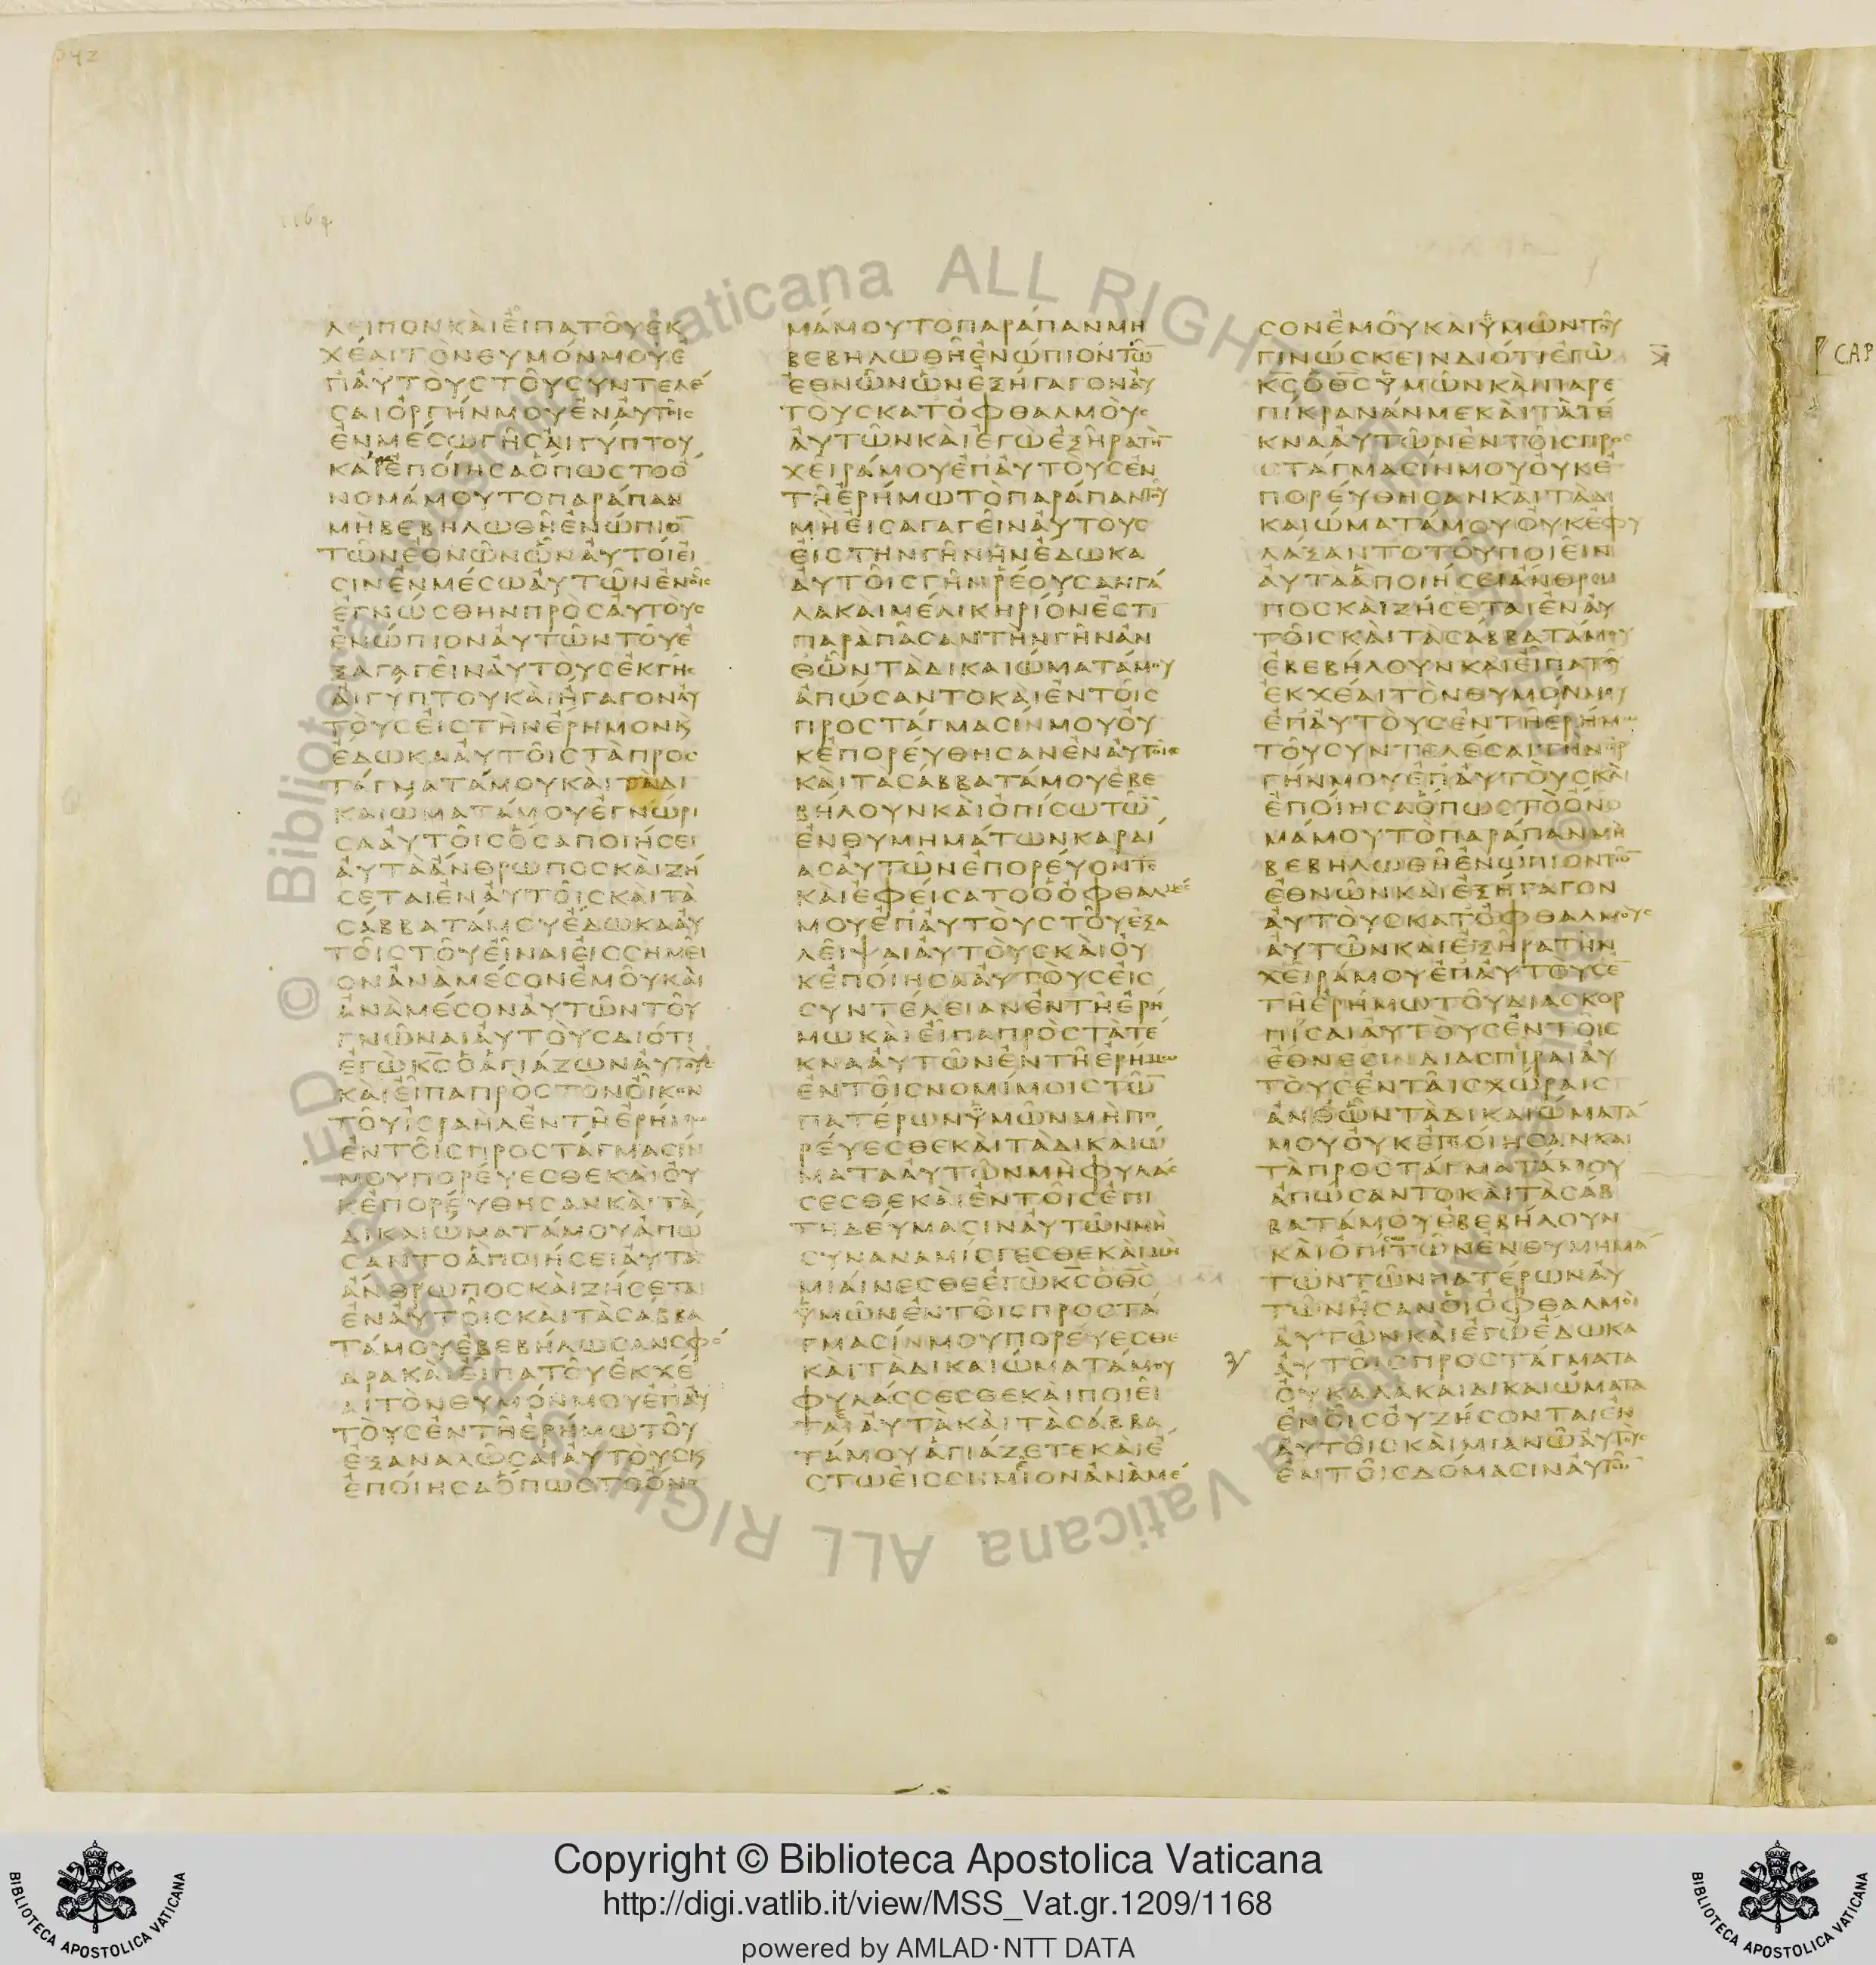 ΛΕΙΠΟΝΚΑΙΕΙΠΑΤΟΥΕΚ
ΧΕΑΙΤΟΝΘΥΜΟΝΜΟΥΕ
ΠΑΥΤΟΥΣΤΟΥΣΥΝΤΕΛΕ
ΣΑΙΟΡΓΗΝΜΟΥΕΝΑΥΤΟΙΣ
ΕΝΜΕΣΩΓΗΣΑΙΓΥΠΤΟΥ
ΚΑΙΕΠΟΙΗΣΑΟΠΩΣΤΟΟ
ΝΟΜΑΜΟΥΤΟΠΑΡΑΠΑΝ
ΜΗΒΕΒΗΛΩΘΗΕΝΩΠΙΟ̅
ΤΩΝΕΘΝΩΝΩΝΑΥΤΟΙΕΙ
ΣΙΝΕΝΜΕΣΩΑΥΤΩΝΕΝΟΙΣ
ΕΓΝΩΣΘΗΝΠΡΟΣΑΥΤΟΥΣ
ΕΝΩΠΙΟΝΑΥΤΩΝΤΟΥΕ
ΞΑΓΑΓΕΙΝΑΥΤΟΥΣΕΚΓΗΣ
ΑΙΓΥΠΤΟΥΚΑΙΗΓΑΓΟΝΑΥ
ΤΟΥΣΕΙΣΤΗΝΕΡΗΜΟΝΚ
ΕΔΩΚΑΑΥΤΟΙΣΤΑΠΡΟΣ
ΤΑΓΜΑΤΑΜΟΥΚΑΙΤΑΔΙ
ΚΑΙΩΜΑΤΑΜΟΥΕΓΝΩΡΙ
ΣΑΑΥΤΟΙΣΟΣΑΠΟΙΗΣΕΙ
ΑΥΤΑΑΝΘΡΩΠΟΣΚΑΙΖΗ
ΣΕΤΑΙΕΝΑΥΤΟΙΣΚΑΙΤΑ
ΣΑΒΒΑΤΑΜΟΥΕΔΩΚΑΑΥ
ΤΟΙΣΤΟΥΕΙΝΑΙΕΙΣΣΗΜΕΙ
ΟΝΑΝΑΜΕΣΟΝΕΜΟΥΚΑΙ
ΑΝΑΜΕΣΟΝΑΥΤΩΝΤΟΥ
ΓΝΩΝΑΙΑΥΤΟΥΣΔΙΟΤΙ
ΕΓΩΚ̅Σ̅ΟΑΓΙΑΖΩΝΑΥΤΟΥΣ
ΚΑΙΕΙΠΑΠΡΟΣΤΟΝΟΙΚΟΝ
ΤΟΥΙΣΡΑΗΛΕΝΤΗΕΡΗΜΩ
ΕΝΤΟΙΣΠΡΟΣΤΑΓΜΑΣΙΝ
ΜΟΥΠΟΡΕΥΕΣΘΕΚΑΙΟΥ
ΚΕΠΟΡΕΥΘΗΣΑΝΚΑΙΤΑ
ΔΙΚΑΙΩΜΑΤΑΜΟΥΑΠΩ
ΣΑΝΤΟΑΠΟΙΗΣΕΙΑΥΤΑ
ΑΝΘΡΩΠΟΣΚΑΙΖΗΣΕΤΑΙ
ΕΝΑΥΤΟΙΣΚΑΙΤΑΣΑΒΒΑ
ΤΑΜΟΥΕΒΕΒΗΛΩΣΑΝΣΦΟ
ΔΡΑΚΑΙΕΙΠΑΤΟΥΕΚΧΕ
ΑΙΤΟΝΘΥΜΟΝΜΟΥΕΠΑΥ
ΤΟΥΣΕΝΤΗΕΡΗΜΩΤΟΥ
ΕΞΑΝΑΛΩΣΑΙΑΥΤΟΥΣΚ
ΕΠΟΙΗΣΑΟΠΩΣΤΟΟΝΟ
ΜΑΜΟΥΤΟΠΑΡΑΠΑΝΜΗ
ΒΕΒΗΛΩΘΗΕΝΩΠΙΟΝΤΩ̅
ΕΘΝΩΝΩΝΕΞΗΓΑΓΟΝΑΥ
ΤΟΥΣΚΑΤΟΦΘΑΛΜΟΥΣ
ΑΥΤΩΝΚΑΙΕΓΩΕΞΗΡΑΤΗΝ
ΧΕΙΡΑΜΟΥΕΠΑΥΤΟΥΣΕΝ
ΤΗΕΡΗΜΩΤΟΠΑΡΑΠΑΝΤΟΥ
ΜΗΕΙΣΑΓΑΓΕΙΝΑΥΤΟΥΣ
ΕΙΣΤΗΝΓΗΝΗΝΕΔΩΚΑ
ΑΥΤΟΙΣΓΗΝΡΕΟΥΣΑΝΓΑ
ΛΑΚΑΙΜΕΛΙΚΗΡΙΟΝΕΣΤΙ
ΠΑΡΑΠΑΣΑΝΤΗΝΓΗΝΑΝ
ΘΩΝΤΑΔΙΚΑΙΩΜΑΤΑΜΟΥ
ΑΠΩΣΑΝΤΟΚΑΙΕΝΤΟΙΣ
ΠΡΟΣΤΑΓΜΑΣΙΝΜΟΥΟΥ
ΚΕΠΟΡΕΥΘΗΣΑΝΕΝΑΥΤΟΙΣ
ΚΑΙΤΑΣΑΒΒΑΤΑΜΟΥΕΒΕ
ΒΗΛΟΥΝΚΑΙΟΠΙΣΩΤΩ̅
ΕΝΘΥΜΗΜΑΤΩΝΚΑΡΔΙ
ΑΣΑΥΤΩΝΕΠΟΡΕΥΟΝΤΟ
ΚΑΙΕΦΕΙΣΑΤΟΟΟΦΘΑΛΜΟΣ
ΜΟΥΕΠΑΥΤΟΥΣΤΟΥΕΞΑ
ΛΕΙΨΑΙΑΥΤΟΥΣΚΑΙΟΥ
ΚΕΠΟΙΗΣΑΑΥΤΟΥΣΕΙΣ
ΣΥΝΤΕΛΕΙΑΝΕΝΤΗΕΡΗ
ΜΩΚΑΙΕΙΠΑΠΡΟΣΤΑΤΕ
ΚΝΑΑΥΤΩΝΕΝΤΗΕΡΗΜΩ
ΕΝΤΟΙΣΝΟΜΙΜΟΙΣΤΩ̅
ΠΑΤΕΡΩΝΥΜΩΝΜΗΠΟ
ΡΕΥΕΣΘΕΚΑΙΤΑΔΙΚΑΙΩ
ΜΑΤΑΑΥΤΩΝΜΗΦΥΛΑΣ
ΣΕΣΘΕΚΑΙΕΝΤΟΙΣΕΠΙ
ΤΗΔΕΥΜΑΣΙΝΑΥΤΩΝΜΗ
ΣΥΝΑΝΑΜΙΣΓΕΣΘΕΚΑΙΜΗ
ΜΙΑΙΝΕΣΘΕΕΓΩΚ̅Σ̅ΟΘ̅Σ̅
ΥΜΩΝΕΝΤΟΙΣΠΡΟΣΤΑ
ΓΜΑΣΙΝΜΟΥΠΟΡΕΥΕΣΘΕ
ΚΑΙΤΑΔΙΚΑΙΩΜΑΤΑΜΟΥ
ΦΥΛΑΣΣΕΣΘΕΚΑΙΠΟΙΕΙ
ΤΑΙΑΥΤΑΚΑΙΤΑΣΑΒΒΑ
ΤΑΜΟΥΑΓΙΑΖΕΤΕΚΑΙΕ
ΣΤΩΕΙΣΣΗΜΙΟΝΑΝΑΜΕ
ΣΟΝΕΜΟΥΚΑΙΥΜΩΝΤΟΥ
ΓΙΝΩΣΚΕΙΝΔΙΟΤΙΕΓΩ
Κ̅Σ̅ΟΘ̅Σ̅ΥΜΩΝΚΑΙΠΑΡΕ
ΠΙΚΡΑΝΑΝΜΕΚΑΙΤΑΤΕ
ΚΝΑΑΥΤΩΝΕΝΤΟΙΣΠΡΟΣ
ΣΤΑΓΜΑΣΙΝΜΟΥΟΥΚΕ
ΠΟΡΕΥΘΗΣΑΝΚΑΙΤΑΔΙ
ΚΑΙΩΜΑΤΑΜΟΥΟΥΚΕΦΥ
ΛΑΞΑΝΤΟΤΟΥΠΟΙΕΙΝ
ΑΥΤΑΑΠΟΙΗΣΕΙΑΝΘΡΩ
ΠΟΣΚΑΙΖΗΣΕΤΑΙΕΝΑΥ
ΤΟΙΣΚΑΙΤΑΣΑΒΒΑΤΑΜΟΥ
ΕΒΕΒΗΛΟΥΝΚΑΙΕΙΠΑΤΟΥ
ΕΚΧΕΑΙΤΟΝΘΥΜΟΝΜΟΥ
ΕΠΑΥΤΟΥΣΕΝΤΗΕΡΗΜΩ
ΤΟΥΣΥΝΤΕΛΕΣΑΙΤΗΝΟΡ
ΓΗΝΜΟΥΕΠΑΥΤΟΥΣΚΑΙ
ΕΠΟΙΗΣΑΟΠΩΣΤΟΟΝΟ
ΜΑΜΟΥΤΟΠΑΡΑΠΑΝΜΗ
ΒΕΒΗΛΩΘΗΕΝΩΠΙΟΝΤΩ̅
ΕΘΝΩΝΚΑΙΕΞΗΓΑΓΟΝ
ΑΥΤΟΥΣΚΑΤΟΦΘΑΛΜΟΥΣ
ΑΥΤΩΝΚΑΙΕΞΗΡΑΤΗΝ
ΧΕΙΡΑΜΟΥΕΠΑΥΤΟΥΣΕ̅
ΤΗΕΡΗΜΩΤΟΥΔΙΑΣΚΟΡ
ΠΙΣΑΙΑΥΤΟΥΣΕΝΤΟΙΣ
ΕΘΝΕΣΙΝΔΙΑΣΠΙΡΑΙΑΥ
ΤΟΥΣΕΝΤΑΙΣΧΩΡΑΙΣ
ΑΝΘΩΝΤΑΔΙΚΑΙΩΜΑΤΑ
ΜΟΥΟΥΚΕΠΟΙΗΣΑΝΚΑΙ
ΤΑΠΡΟΣΤΑΓΜΑΤΑΜΟΥ
ΑΠΩΣΑΝΤΟΚΑΙΤΑΣΑΒ
ΒΑΤΑΜΟΥΕΒΕΒΗΛΟΥΝ
ΚΑΙΟΠΙΣΩΤΩΝΕΝΘΥΜΗΜΑ
ΤΩΝΤΩΝΠΑΤΕΡΩΝΑΥ
ΤΩΝΗΣΑΝΟΙΟΦΘΑΛΜΟΙ
ΑΥΤΩΝΚΑΙΕΓΩΕΔΩΚΑ
ΑΥΤΟΙΣΠΡΟΣΤΑΓΜΑΤΑ
ΟΥΚΑΛΑΚΑΙΔΙΚΑΙΩΜΑΤΑ
ΕΝΟΙΣΟΥΖΗΣΟΝΤΑΙΕΝ
ΑΥΤΟΙΣΚΑΙΜΙΑΝΩΑΥΤΟΥΣ
ΕΝΤΟΙΣΔΟΜΑΣΙΝΑΥΤΩ̅
CAP
Copyright © Biblioteca Apostolica Vaticana
http://digi.vatlib.it/view/MSS_Vat.gr.1209/1168
powered by AMLAD·NTT DATA
BIBLIOTECA APOSTOLICA VATICANA
BIBLIOTECA APOSTOLICA VATICANA